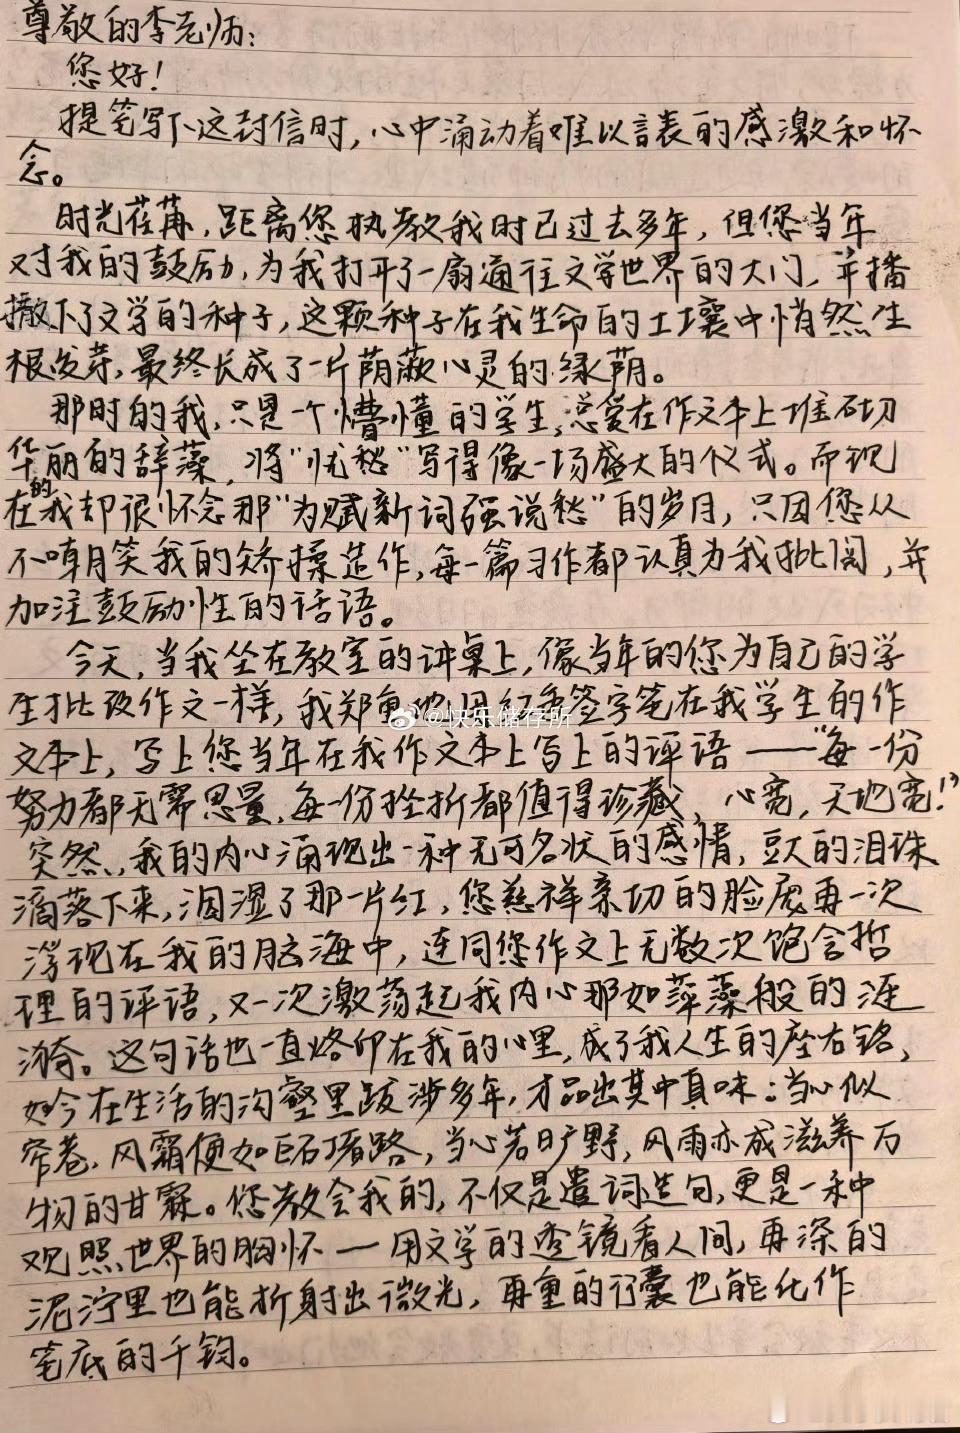 尊敬的李老师：
您好！
提笔写下这封信时，心中涌动着难以言表的感激和怀
念。
时光荏苒，距离您执教我时已过去多年，但您当年
对我的鼓励，为我打开了一扇通往文学世界的大门，并播
撒下了文学的种子，这颗种子在我生命的土壤中悄然生
根发芽，最终长成了一片荫蔽心灵的绿荫。
那时的我，只是一个懵懂的学生，总爱在作文本上堆砌
华丽的辞藻，将“忧愁”写得像一场盛大的仪式。而现
在的我却很怀念那“为赋新词强说愁”的岁月，只因您从
不嘲笑我的矫揉造作，每一篇习作都认真为我批阅，并
加注鼓励性的话语。
今天，当我坐在教室的讲桌上，像当年的您为自己的学
生批改作文一样，我郑重地用红香签字笔在我学生的作
文本上，写上您当年在我作文本上写上的评语——“每一份
努力都无需思量，每一份挫折都值得珍藏，心宽，天地宽！”
突然，我的内心涌现出一种无可名状的感情，豆大的泪珠
滴落下来，洇湿了那一片红，您慈祥亲切的脸庞再一次
浮现在我的脑海中，连同您作文上无数次饱含哲
理的评语，又一次激荡起我内心那如萍藻般的涟
漪。这句话也一直烙印在我的心里，成了我人生的座右铭，
如今在生活的沟壑里跋涉多年，才品出其中真味：当心似
窄巷，风霜便如巨石堵路，当心若旷野，风雨亦成滋养万
物的甘霖。您教会我的，不仅是遣词造句，更是一种
观照世界的胸怀—用文学的透镜看人间，再深的
泥泞里也能折射出微光，再重的行囊也能化作
笔底的千钧。
@快乐储存所